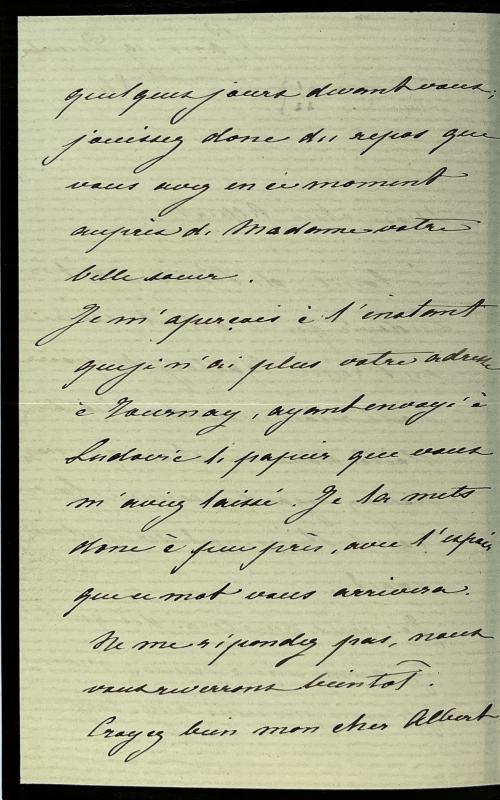 quelques jours devant vous;
jouissez donc du repos que
vous avez en ce moment
auprès de Madame votre
belle soeur.
Je m'aperçois à l'instant
que je n'ai plus votre adresse
à Tournay, ayant envoyé à
Ludovic le papier que vous
m'aviez laissé. Je la mets
donc à peu près, avec l'espoir
que ce mot vous arrivera.
Ne me répondez pas, nous
vous reverrons bientôt.
Croyez bien mon cher Albert